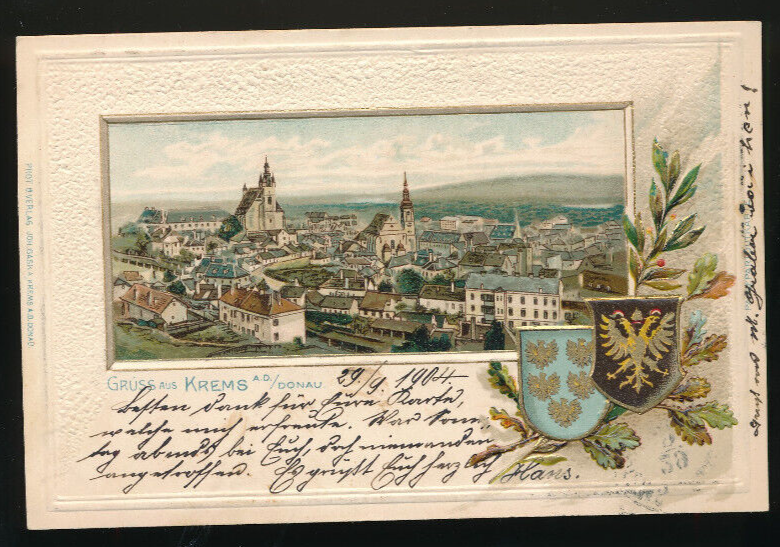 GRUSS AUS KREMS A.D./DONAU
29./9. 1904
Besten Dank für Eure Karte,
welche mich erfreute. War Sonn-
tag abends bei Euch, doch niemanden
angetroffen. Es grüßt Euch herzlich Hans.
PHOT. U. VERLAG JOH. GAŠKA KREMS A.D. DONAU